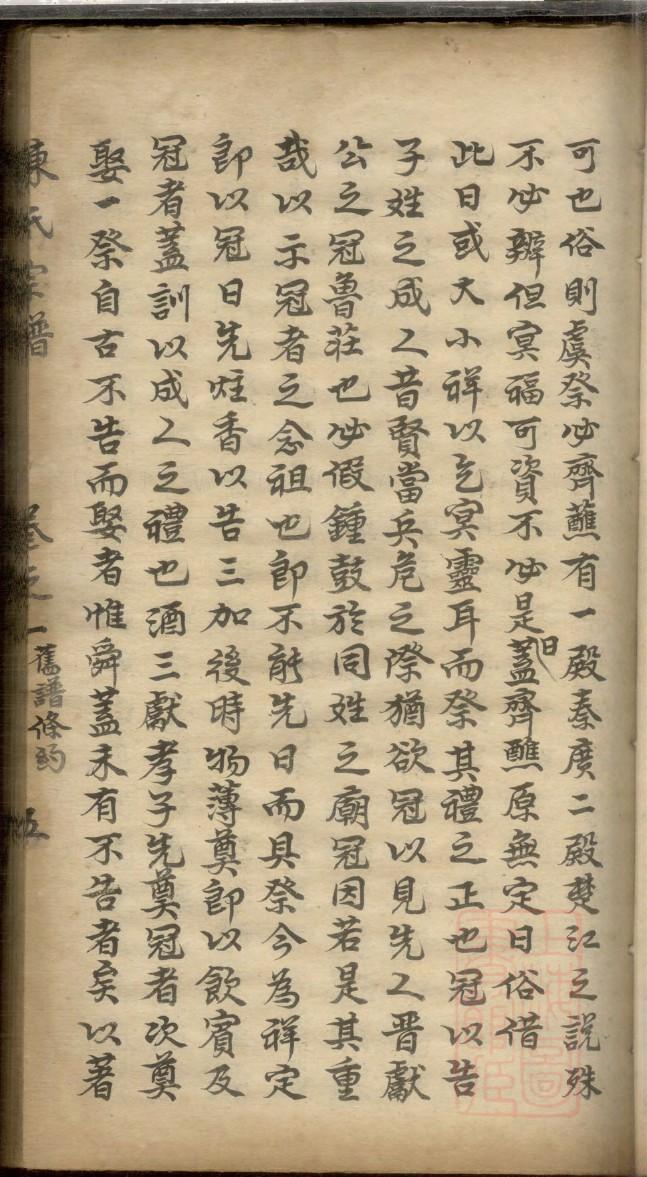 可也俗則虞祭必齊蘸有一殿秦廣二殿楚江之說殊
不必辨但冥福可資不必是日蓋齊醮原無定日俗借
此日或大小祥以乞冥靈耳而祭其禮之正也冠以告
子姓之成人昔賢當兵危之際猶欲冠以見先人晋獻
公之冠魯莊也必假鍾鼓於同姓之廟冠因若是其重
哉以示冠者之念祖也即不能先日而具祭今為祥定
即以冠日先炷香以告三加後時物薄奠即以飲賓及
冠者蓋訓以成人之禮也酒三獻孝子先奠冠者次奠
娶一祭自古不告而娶者惟舜蓋未有不告者矣以著
陳氏宗譜 卷之一 舊譜條約 五